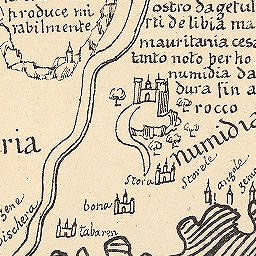 produce mi
rabilmente
ostro da getul
rti de libia ma
mauritania cesa
tanto noto per ho
numidia da
dura fin a
rocco
ria
numidia
stora
storele
angole
bona
tabaren